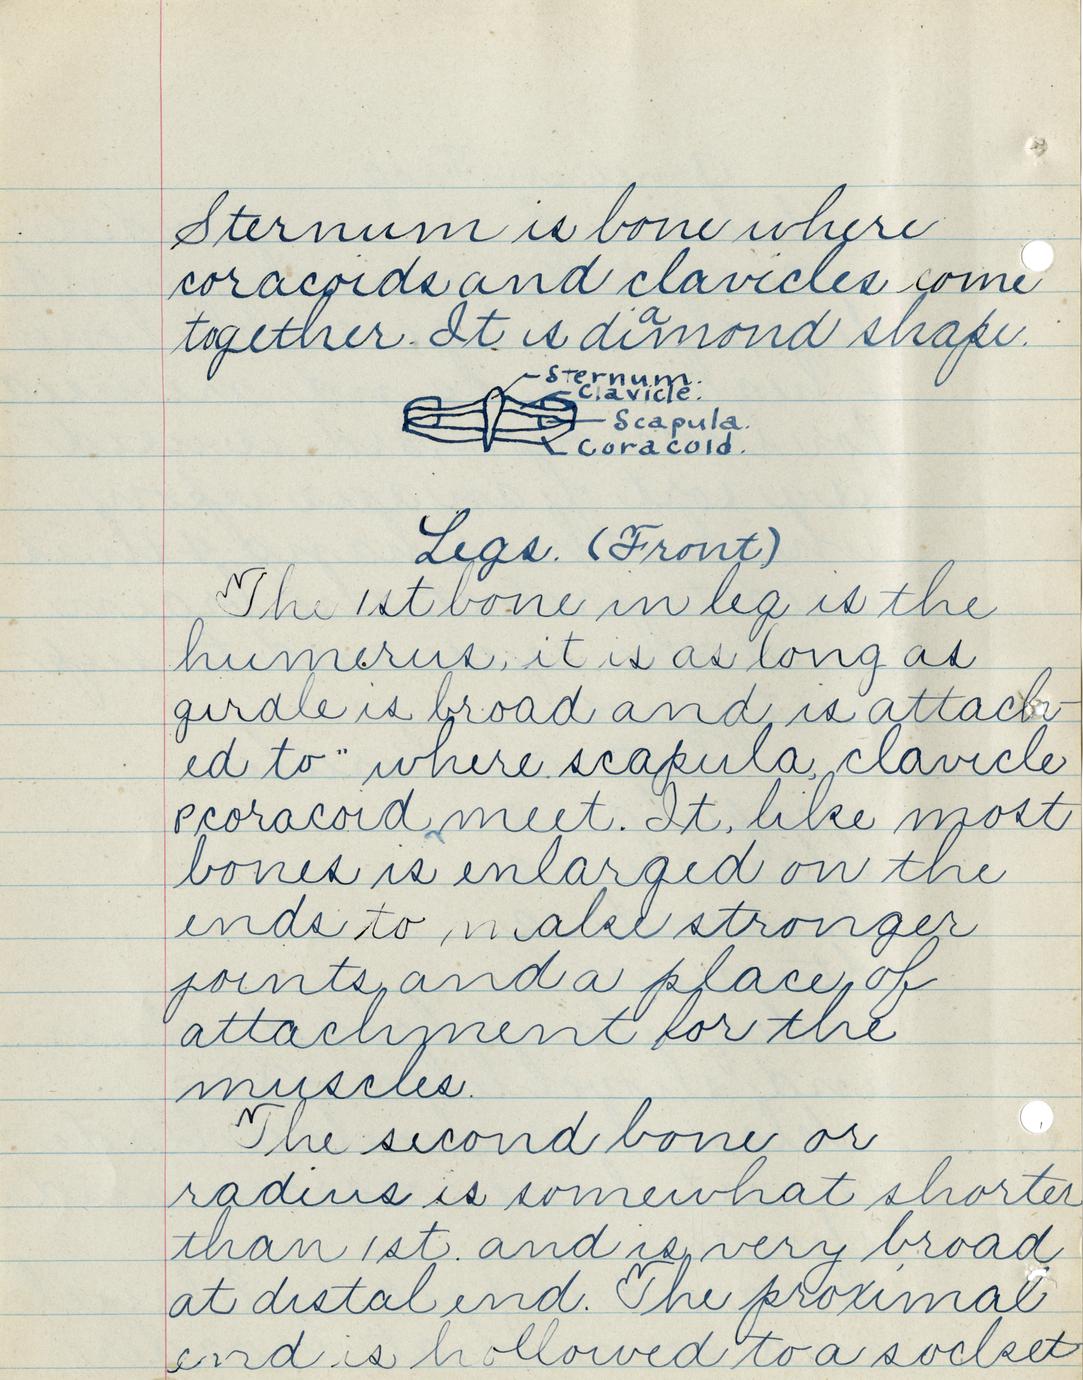 Sternum is bone where
coracoids and clavicles come
together. It is diamond shape.
Sternum.
Clavicle.
Scapula.
Coracoid.
Legs. (Front)
The 1st bone in leg is the
humerus, it is as long as
girdle is broad and is attach-
ed to " where scapula, clavicle
& coracoid meet. It, like most
bones is enlarged on the
ends to make stronger
joints and a place of
attachment for the
muscles.
The second bone or
radius is somewhat shorter
than 1st. and is very broad
at distal end. The proximal
end is hollowed to a socket